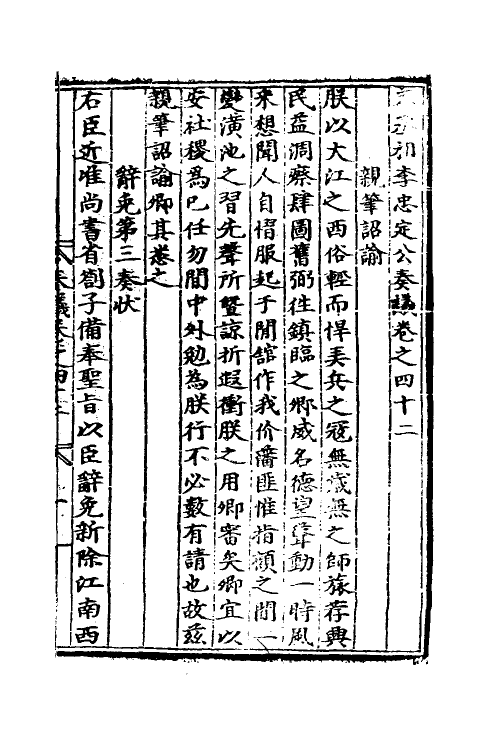 丞相李忠定公奏議卷之四十二
親筆詔諭
朕以大江之西俗輕而悍弄兵之寇無歲無之師旅荐興
民益凋瘵肆圖舊弼徃鎮臨之卿威名德望聳動一時風
采想聞人自慴服起于閒舘作我价藩匪惟指顧之間一
變潢池之習先聲所曁諒折遐衝朕之用卿審矣卿宜以
安社稷為已任勿間中外勉為朕行不必數有請也故兹
親筆詔諭卿其悉之
辭免第三奏狀
右臣近准尚書省劄子備奉聖旨以臣辭免新除江南西